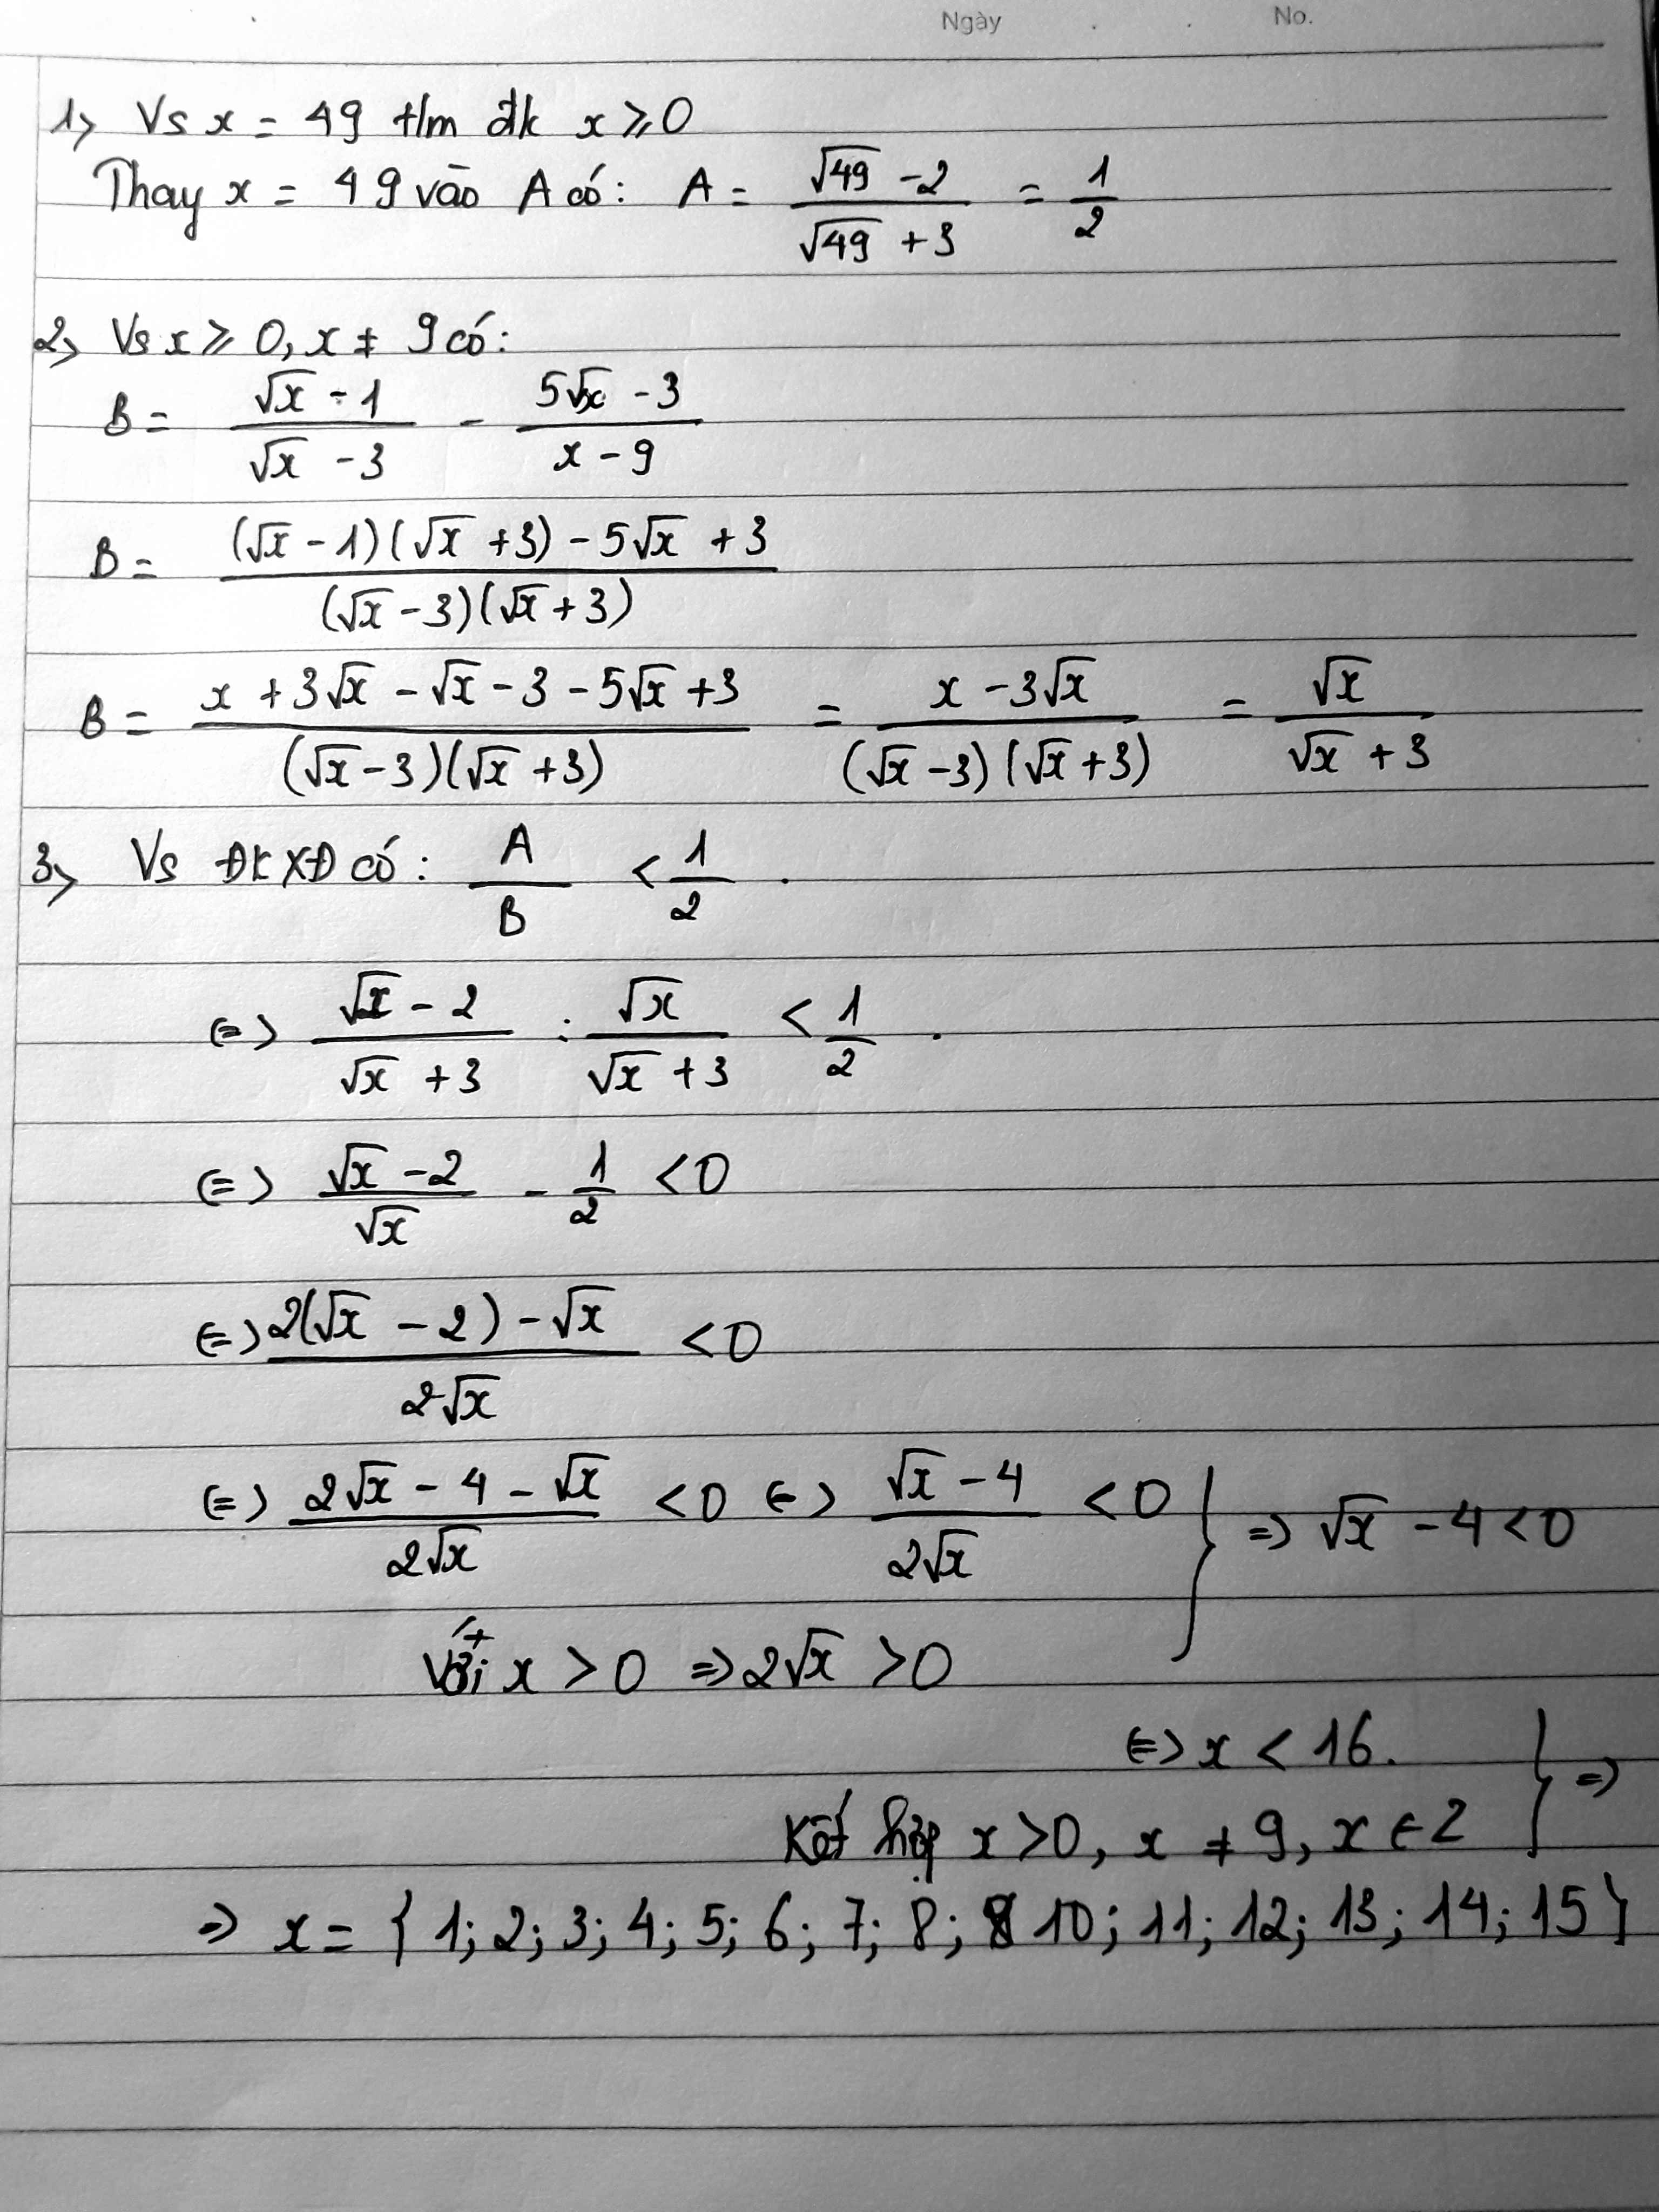 Ngày . . No.
1> Vs x = 49 t/m đk x ⩾ 0
Thay x = 49 vào A có: A = (√49 - 2)/(√49 + 3) = 1/2
2> Vs x ⩾ 0, x ≠ 9 có:
B = (√x - 1)/(√x - 3) - (5√x - 3)/(x - 9)
B = ((√x - 1)(√x + 3) - 5√x + 3)/((√x - 3)(√x + 3))
B = (x + 3√x - √x - 3 - 5√x + 3)/((√x - 3)(√x + 3)) = (x - 3√x)/((√x - 3)(√x + 3)) = √x/(√x + 3)
3> Vs ĐKXĐ có: A/B < 1/2 .
⇔ (√x - 2)/(√x + 3) : √x/(√x + 3) < 1/2 .
⇔ (√x - 2)/√x - 1/2 < 0
⇔ (2(√x - 2) - √x)/(2√x) < 0
⇔ (2√x - 4 - √x)/(2√x) < 0 ⇔ (√x - 4)/(2√x) < 0 } ⇒ √x - 4 < 0
Với x > 0 ⇒ 2√x > 0
⇔ x < 16. } ⇒
Kết hợp x > 0, x ≠ 9, x ∈ Z
⇒ x = { 1; 2; 3; 4; 5; 6; 7; 8; 10; 11; 12; 13; 14; 15 }